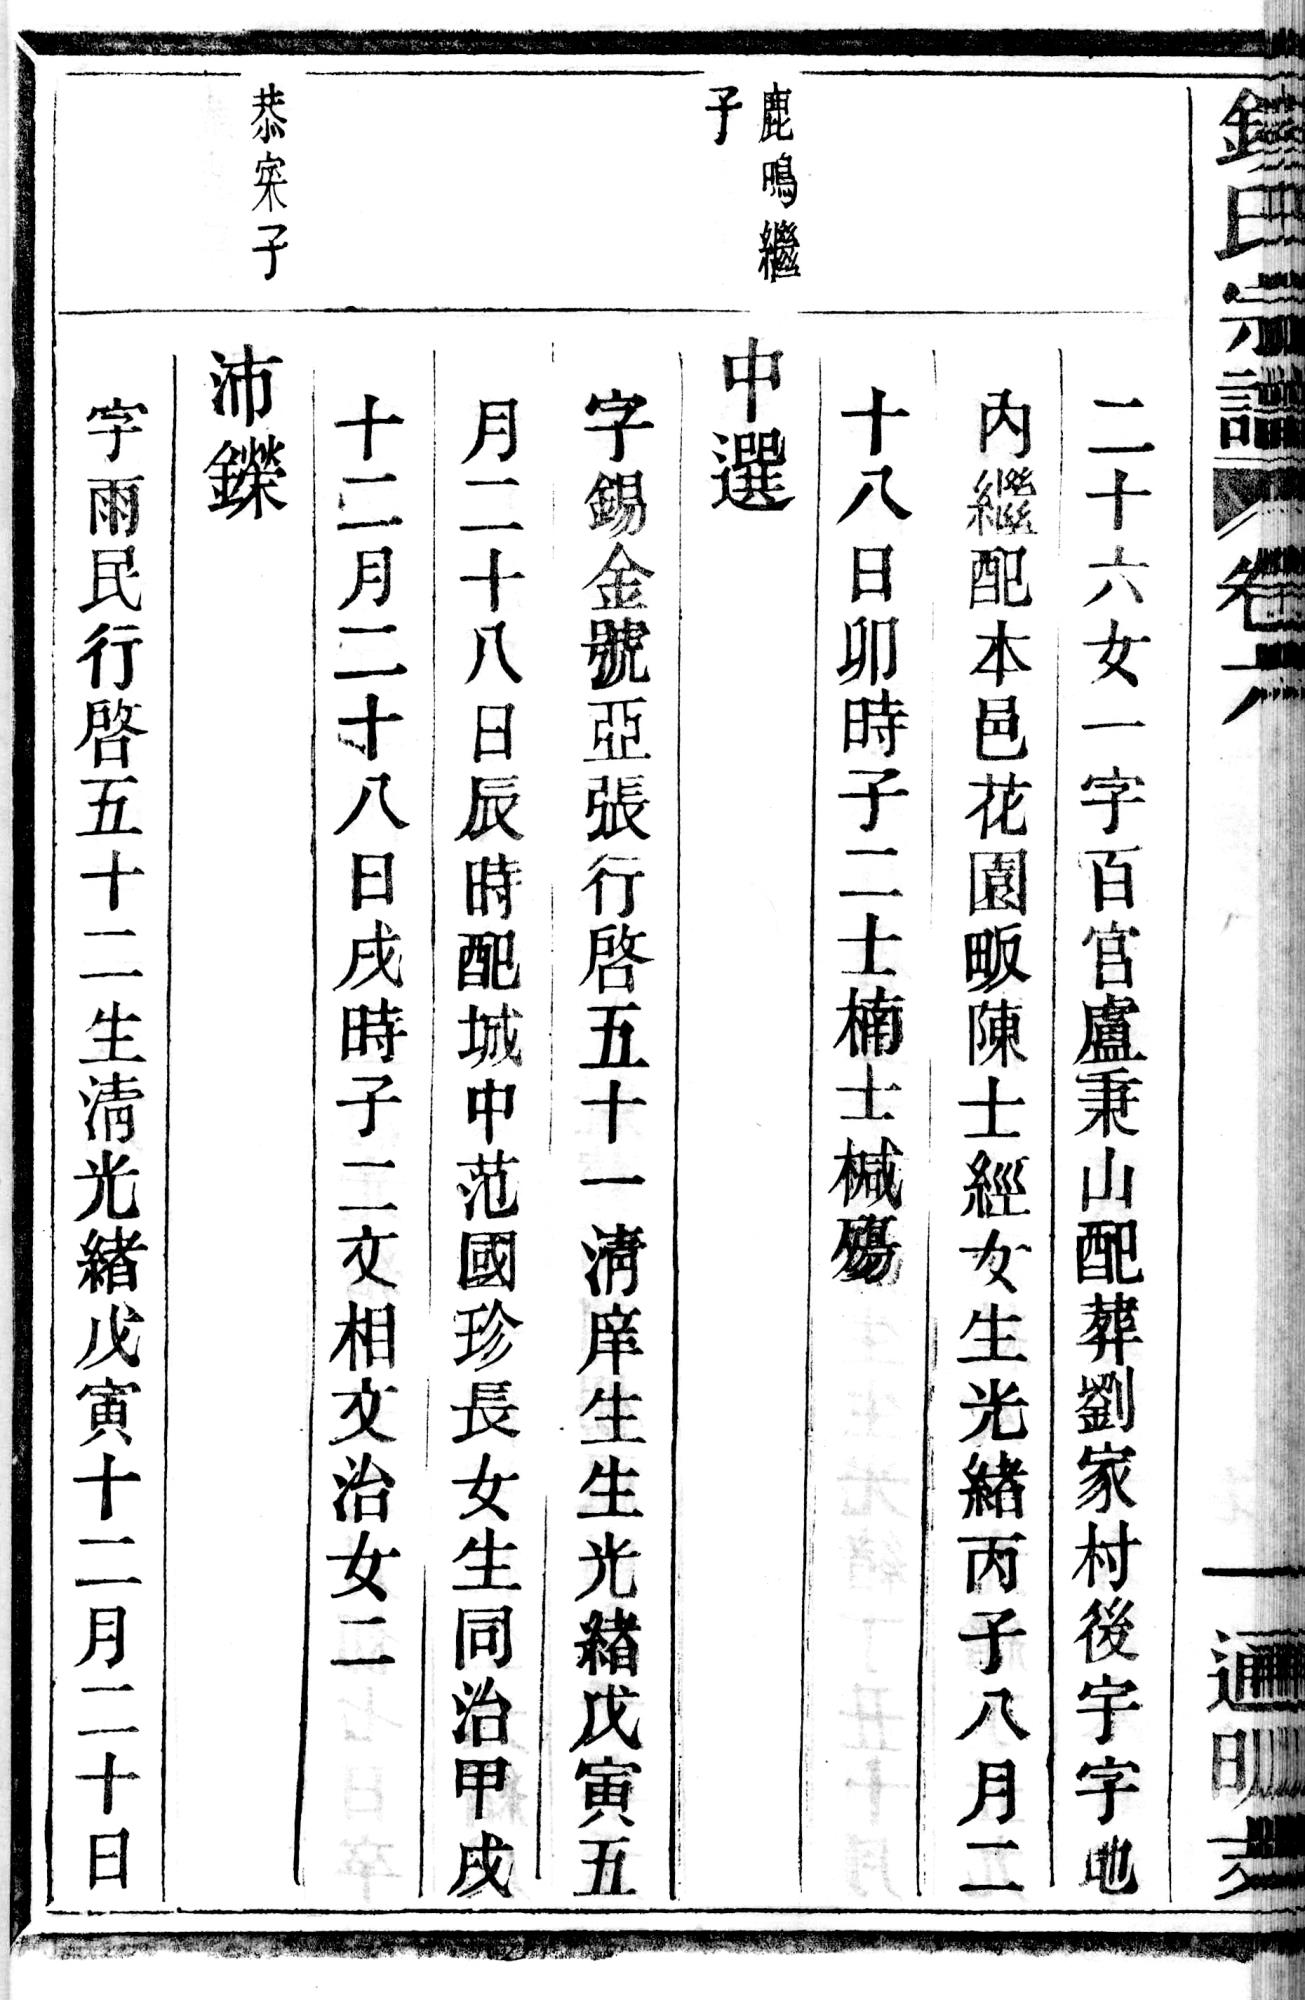 錢氏宗譜 卷六 一 通明支
二十六女一字百官盧秉山配葬劉家村後宇字地
內繼配本邑花園畈陳士經女生光緒丙子八月二
十八日卯時子二士楠士楲殤
鹿鳴繼
子
中選
字錫金號亞張行啓五十一淸庠生生光緒戊寅五
月二十八日辰時配城中范國珍長女生同治甲戌
十二月二十八日戌時子二文相文治女二
恭寀子
沛鑅
字雨民行啓五十二生淸光緒戊寅十二月二十日